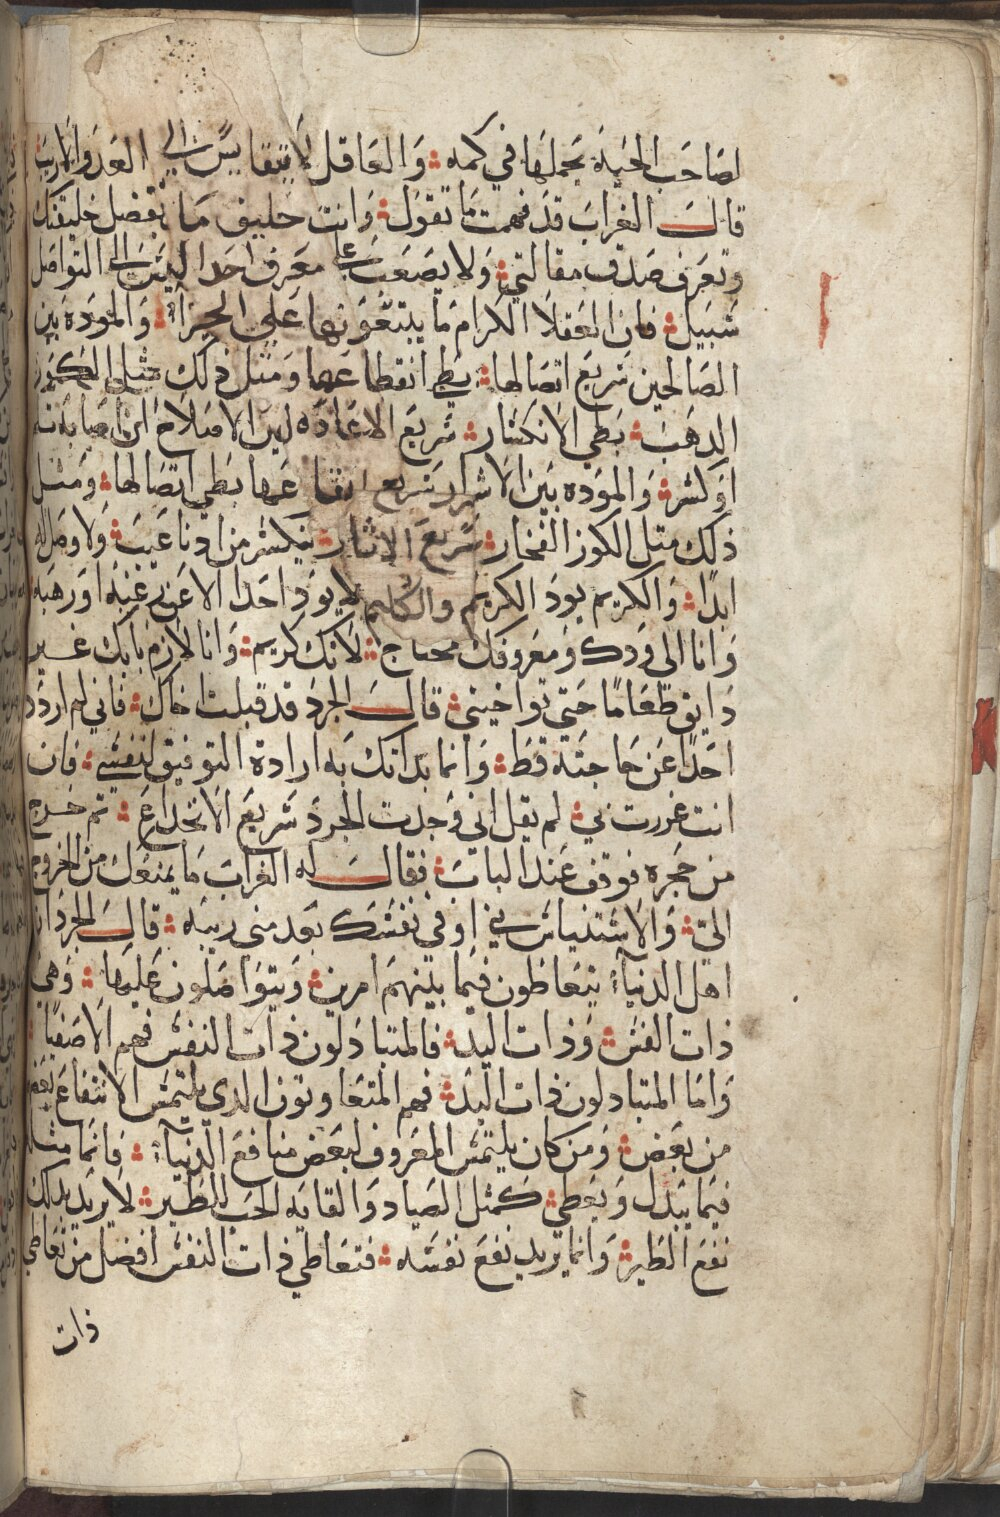 لصاحب الحية يحملها في كمه ۞ والعاقل لا يتقايس الي العدو الاريب
قال الغراب قد فهمت ما تقول ۞ وانت خليق ما تفضل خليقتك
وتعرف صدق مقالتي ۞ ولا يصعب علي معرف احدا ليس الي التواصل
سبيل ۞ فان العقلا الكرام ما يبتغونها علي الجزاء ۞ والمودة بين
الصالحين سريع اتصالها ۞ بطي انقطاعها ومثل ذلك مثل الكوز
الدهب ۞ بطي الانكسار ۞ سريع الاعاده لين الاصلاح ان اصابه ثلم
او كسر ۞ والموده بين الاشرار سريع انقطاعها بطي اتصالها ۞ ومثل
ذلك متل الكوز الفخار ۞ سريع الانثار ۞ ينكسر من ادنا عيب ۞ ولا وصل له
ابدا ۞ والكريم يود الكريم واللئيم لا يود احدا الا عن رغبة او رهبه
وانا الي ودك ومعروفك محتاج ۞ لانك كريم ۞ وانا لازم بابك غير
دايق طعاما حتي تواخيني ۞ قال الجرد قد قبلت اخاك ۞ فاني لم اردد
احدا عن حاجته قط ۞ وانما بداتك به ارادة التوفيق لنفسي ۞ فان
انت غررت بي ۞ لم يقل اني وجدت الجرد سريع الانخداع ۞ تم خرج
من حجره فوقف عند الباب ۞ فقال له الغراب ما يمنعك من الخروج
الي ۞ والاستيناس بي او في نفسك بعد مني ريبه ۞ قال الجرد ان
اهل الدنيا ۞ يتعاطون فيما بينهم امرين ۞ ويتواصلون عليها ۞ وهي
ذات النفس ۞ وذات اليد ۞ فالمتبادلون ذات النفس فهم الاصفيا ۞
واما المتبادلون ذات اليد ۞ فهم المتعاونون الدي يلتمس الانتفاع بعضهم
من بعض ۞ ومن كان يلتمس المعروف لبعض منافع الدنيا ۞ فانما مثله
فيما يبدل ويعطي ۞ كمثل الصياد والقايه الحب للطير ۞ لا يريد بدلك
نفع الطير ۞ وانما يريد نفع نفسه ۞ فتعاطي ذات النفس افضل من تعاطي
ذات